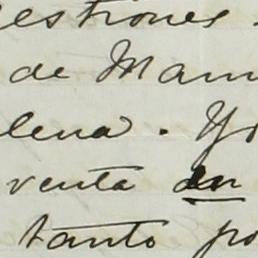 estiones
de Man
lena. Yo
venta en
tanto po